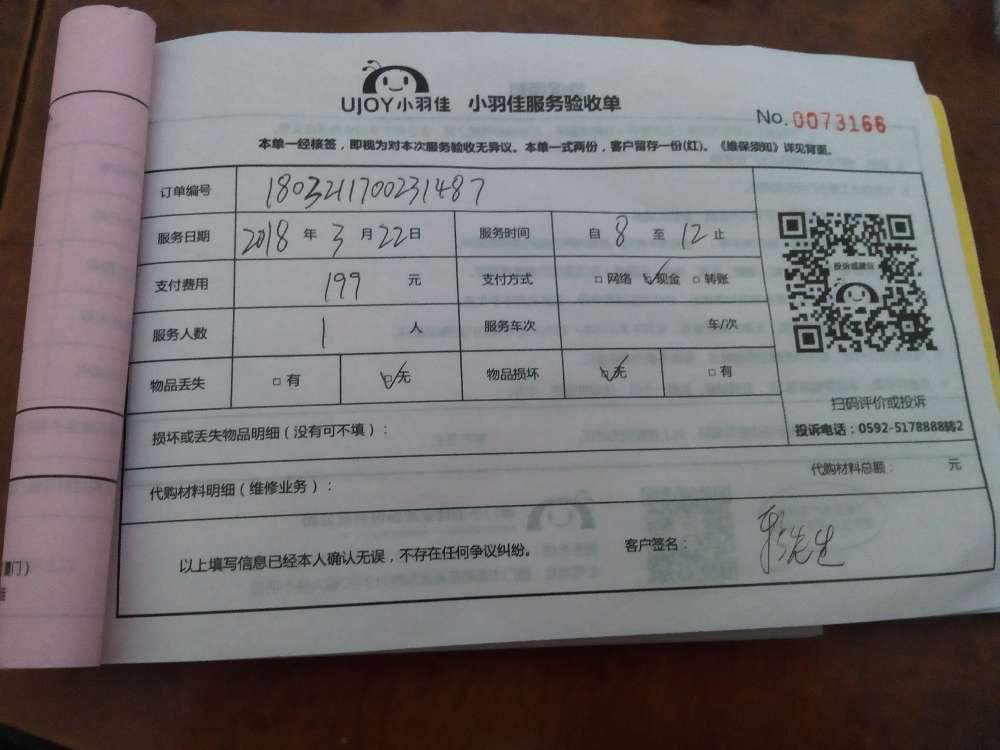 UJOY小羽佳 小羽佳服务验收单
No. 0073166
本单一经核签，即视为对本次服务验收无异议。本单一式两份，客户留存一份(红)。《维保须知》详见背面。
订单编号 1803211700231487
服务日期 2018 年 3 月 22 日 服务时间 自 8 至 12 止
支付费用 199 元 支付方式 □ 网络 ☑ 现金 □ 转账
服务人数 1 人 服务车次 车/次
物品丢失 □ 有 ☑ 无 物品损坏 ☑ 无 □ 有
投诉或建议
扫码评价或投诉
投诉电话：0592-5178888转2
损坏或丢失物品明细（没有可不填）：
代购材料明细（维修业务）： 代购材料总额： 元
以上填写信息已经本人确认无误，不存在任何争议纠纷。 客户签名： 先生
门）